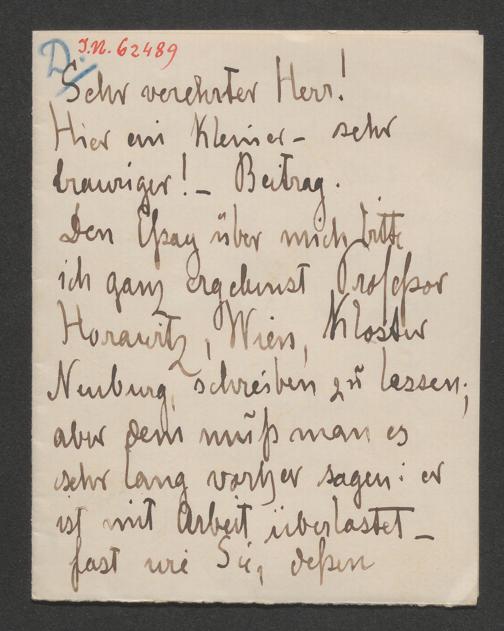 D.
I.N. 62489
Sehr verehrter Herr!
Hier ein kleiner – sehr
trauriger! – Beitrag.
Den Eßay über mich bitte
ich ganz ergebenst Profeßor
Horawitz, Wien, Kloster
Neuburg, schreiben zu lassen;
aber dem muß man es
sehr lang vorher sagen: er
ist mit Arbeit überlastet –
fast wie Sie, deßen